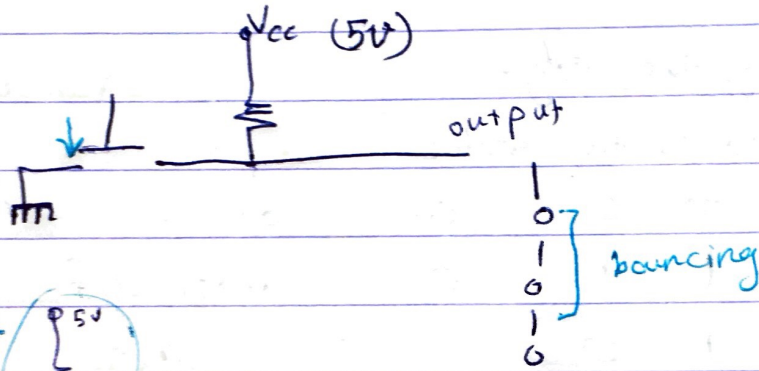 Vcc (5V)
output
1
0
1
0
1
0
bouncing
5V